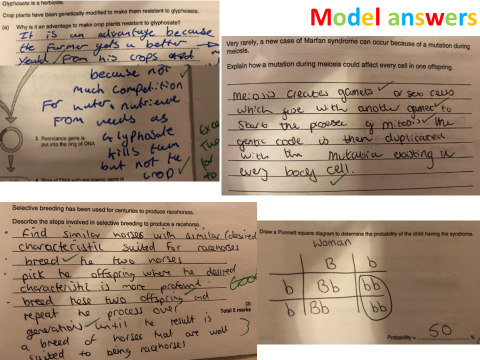 Model answers
Glyphosate is a herbicide.
Crop plants have been genetically modified to make them resistant to glyphosate.
(a) Why is it an advantage to make crop plants resistant to glyphosate?
It is an advantage because
the Farmer gets a better
yeald from his crops
because not
much competition
For nutrients
from weeds as
Glyphosate
kills them
but not the
crop
3 Resistance gene is
put into the ring of DNA
Very rarely, a new case of Marfan syndrome can occur because of a mutation during
meiosis.
Explain how a mutation during meiosis could affect every cell in one offspring.
Meiosis creates gamets or sex cells
which give with another gamet to
start the process of mitosis. the
gentic code is then duplicated
with the mutation existing in
every body cell.
Selective breeding has been used for centuries to produce racehorses.
Describe the steps involved in selective breeding to produce a racehorse.
find similar horses with similar/desired
characteristic suited for racehorses
breed the two horses
pick the offspring where the desired
characteristic is more profound.
Good
breed these two offspring and
repeat the process over
generation until the result is
a breed of horses that are well
suited to being racehorses
(3)
Total 8 marks
3
Draw a Punnett square diagram to determine the probability of the child having the syndrome.
Woman
B b
b Bb bb
b Bb bb
Probability = 50 %